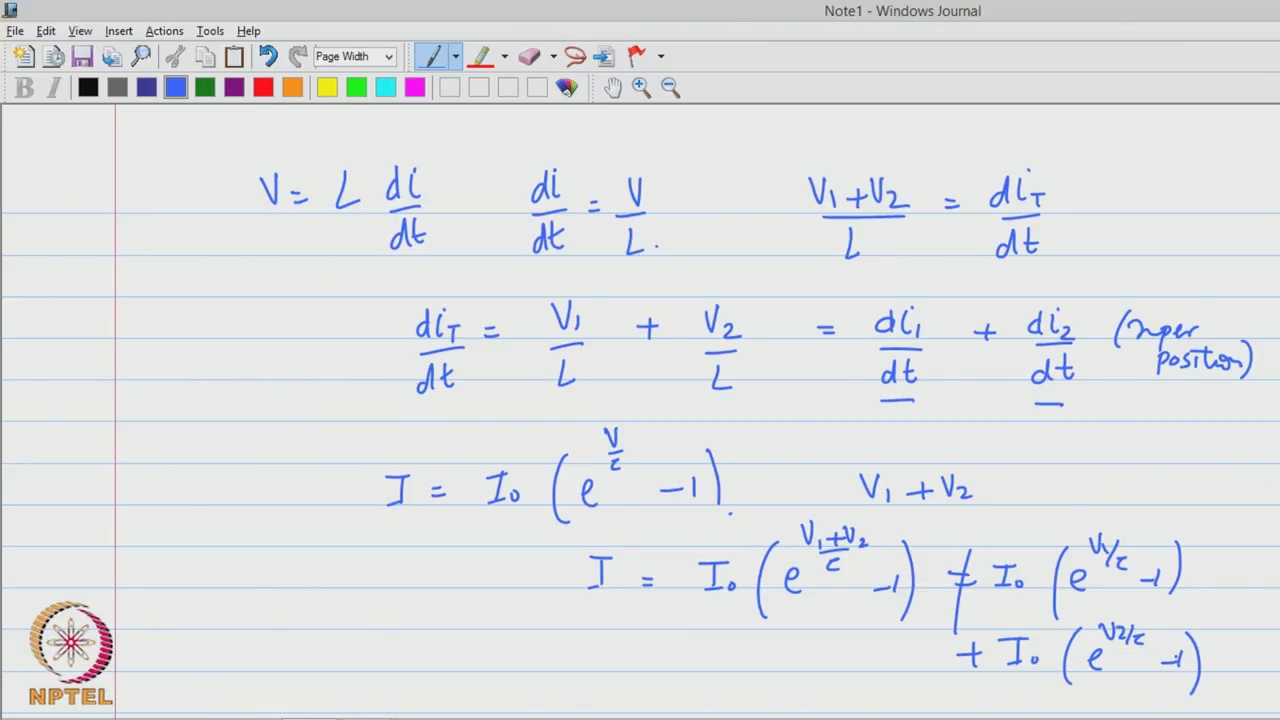 Note1 - Windows Journal
File Edit View Insert Actions Tools Help
Page Width
V = L di/dt di/dt = V/L. (V1 + V2)/L = diT/dt
diT/dt = V1/L + V2/L = di1/dt + di2/dt (super position)
I = I0 (e^(V/c) - 1). V1 + V2
I = I0 (e^((V1+V2)/c) - 1) ≠ I0 (e^(V1/c) - 1)
+ I0 (e^(V2/c) - 1)
NPTEL